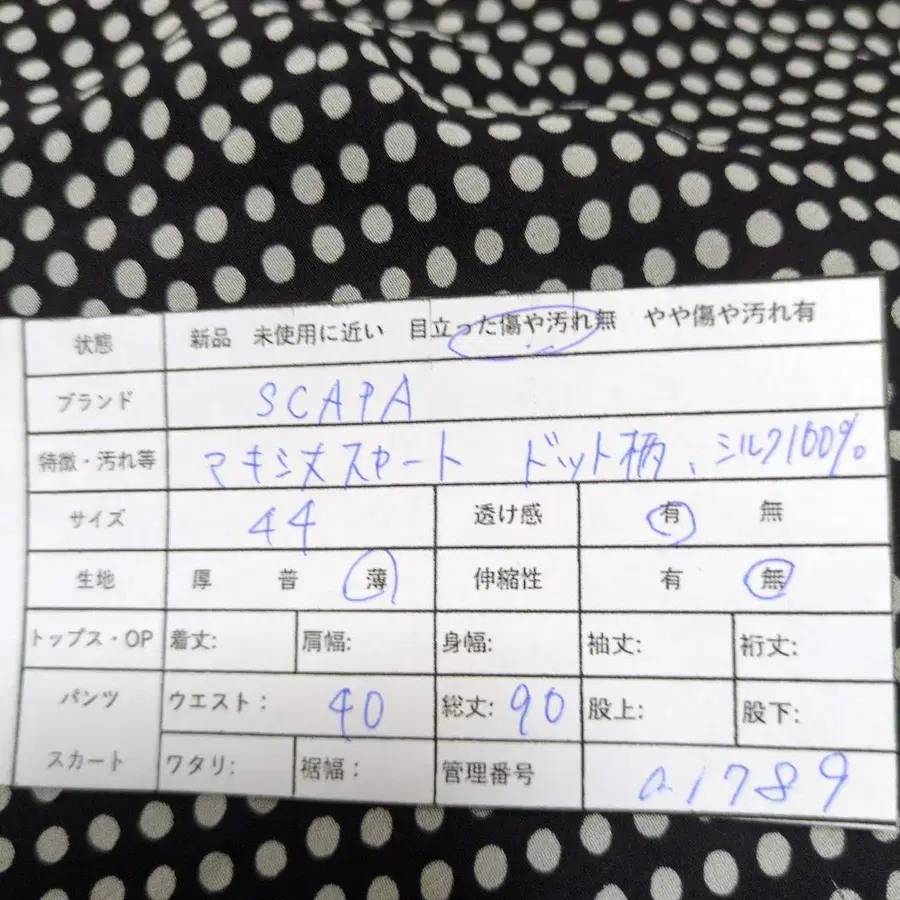 状態 新品 未使用に近い 目立った傷や汚れ無 やや傷や汚れ有
ブランド SCAPA
特徴・汚れ等 マキシ丈スカート ドット柄、シルク100%
サイズ 44 透け感 有 無
生地 厚 普 薄 伸縮性 有 無
トップス・OP 着丈: 肩幅: 身幅: 袖丈: 裄丈:
パンツ ウエスト: 40 総丈: 90 股上: 股下:
スカート ワタリ: 裾幅: 管理番号 a1789